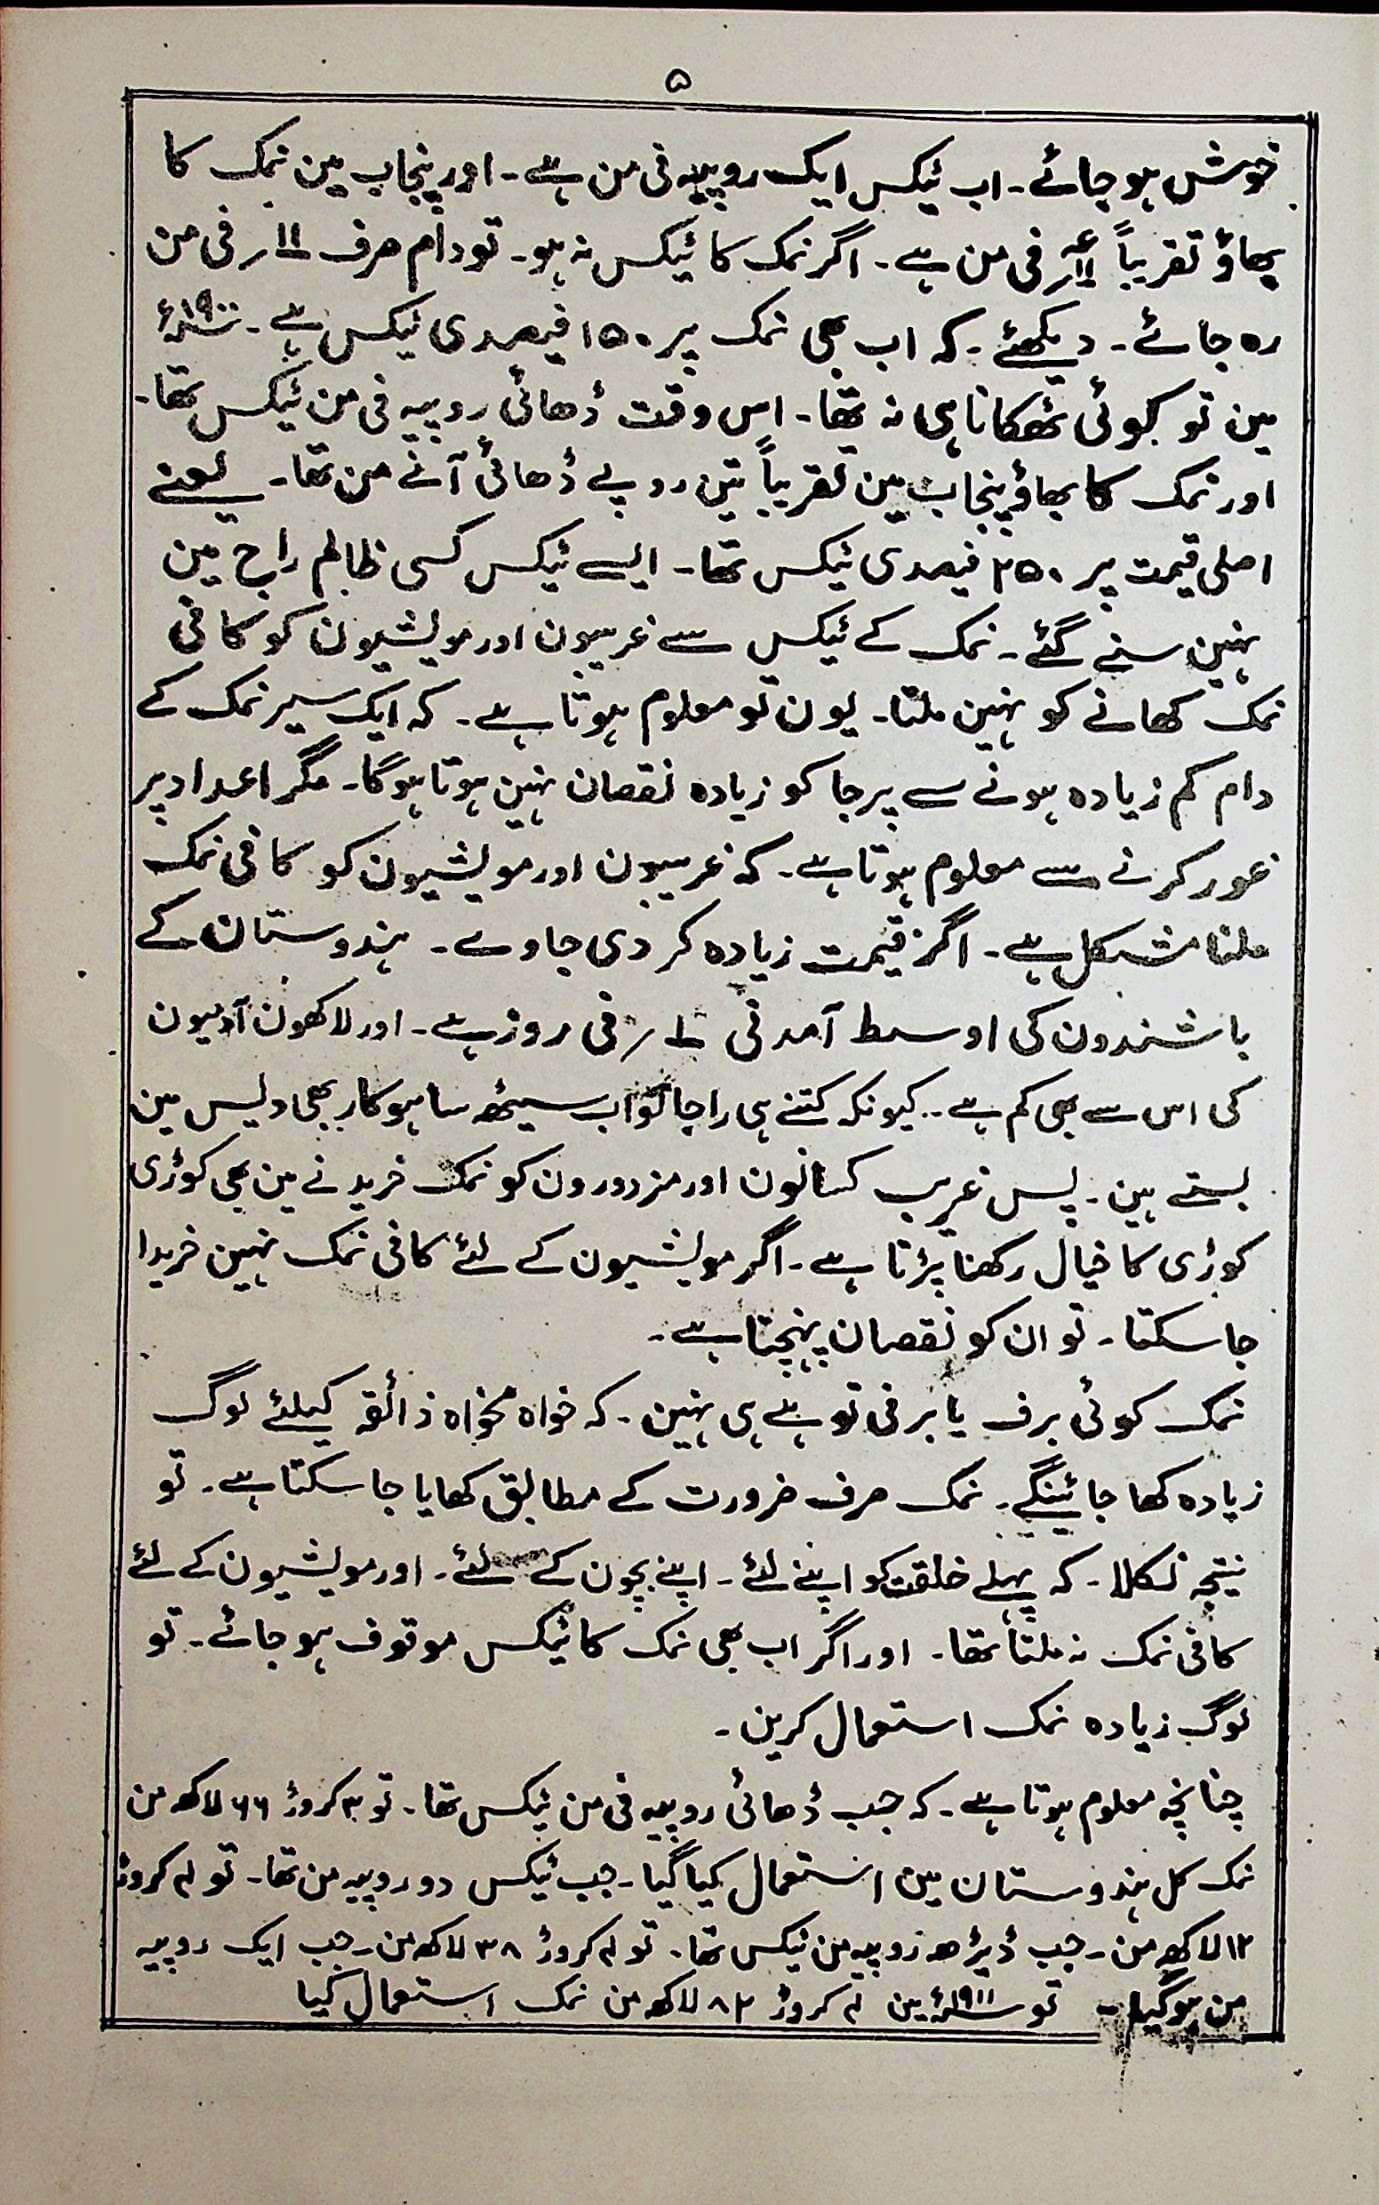 ۵
خوش ہو جائے۔ اب ٹیکس ایک روپیہ فی من ہے۔ اور پنجاب مین نمک کا
بھاؤ تقریباً فی من ہے۔ اگر نمک کا ٹیکس نہ ہو۔ تو دام صرف ۱۱؍ فی من
رہ جائے۔ دیکھئے۔ کہ اب بھی نمک پر ۱۵۰ فیصدی ٹیکس ہے۔ ۱۹۰۰ء
مین تو کوئی ٹھکانا ہی نہ تھا۔ اس وقت ڈھائی روپیہ فی من ٹیکس تھا۔
اور نمک کا بھاؤ پنجاب مین تقریباً تین روپے ڈھائی آنے من تھا۔ یعنے
اصلی قیمت پر ۲۵۰ فیصدی ٹیکس تھا۔ ایسے ٹیکس کسی ظالم راج مین
نہین سنے گئے۔ نمک کے ٹیکس سے غریبون اور مویشیون کو کافی
نمک کھانے کو نہین ملتا۔ یون تو معلوم ہوتا ہے۔ کہ ایک سیر نمک کے
دام کم زیادہ ہونے سے پرجا کو زیادہ نقصان نہین ہوتا ہوگا۔ مگر اعداد پر
غور کرنے سے معلوم ہوتا ہے۔ کہ غریبون اور مویشیون کو کافی نمک
ملنا مشکل ہے۔ اگر قیمت زیادہ کر دی جاوے۔ ہندوستان کے
باشندون کی اوسط آمدنی فی روز ہے۔ اور لاکھون آدمیون
کی اس سے بھی کم ہے۔ کیونکہ کتنے ہی راجا نواب سیٹھ ساہوکار بھی دیس مین
بستے ہین۔ پس غریب کسانون اور مزدورون کو نمک خریدنے مین بھی کوڑی
کوڑی کا خیال رکھنا پڑتا ہے۔ اگر مویشیون کے لئے کافی نمک نہین خریدا
جا سکتا۔ تو ان کو نقصان پہنچتا ہے۔
نمک کوئی برف یا برفی تو ہے ہی نہین۔ کہ خواہ مخواہ ذائقہ کیلئے لوگ
زیادہ کھا جائینگے۔ نمک صرف ضرورت کے مطابق کھایا جا سکتا ہے۔ تو
نتیجہ نکلا۔ کہ پہلے خلقت کو اپنے لئے۔ اپنے بچون کے لئے۔ اور مویشیون کے لئے
کافی نمک نہ ملتا تھا۔ اور اگر اب بھی نمک کا ٹیکس موقوف ہو جائے۔ تو
لوگ زیادہ نمک استعمال کرین۔
چنانچہ معلوم ہوتا ہے۔ کہ جب ڈھائی روپیہ فی من ٹیکس تھا۔ تو ۳ کروڑ ۶۶ لاکھ من
نمک کل ہندوستان مین استعمال کیا گیا۔ جب ٹیکس دو روپیہ من تھا۔ تو ۴ کروڑ
۱۲ لاکھ من۔ جب ڈیڑھ روپیہ من ٹیکس تھا۔ تو ۴ کروڑ ۳۸ لاکھ من۔ جب ایک روپیہ
من ہو گیا۔ تو ۱۹۱۱ء مین ۴ کروڑ ۸۲ لاکھ من نمک استعمال کیا